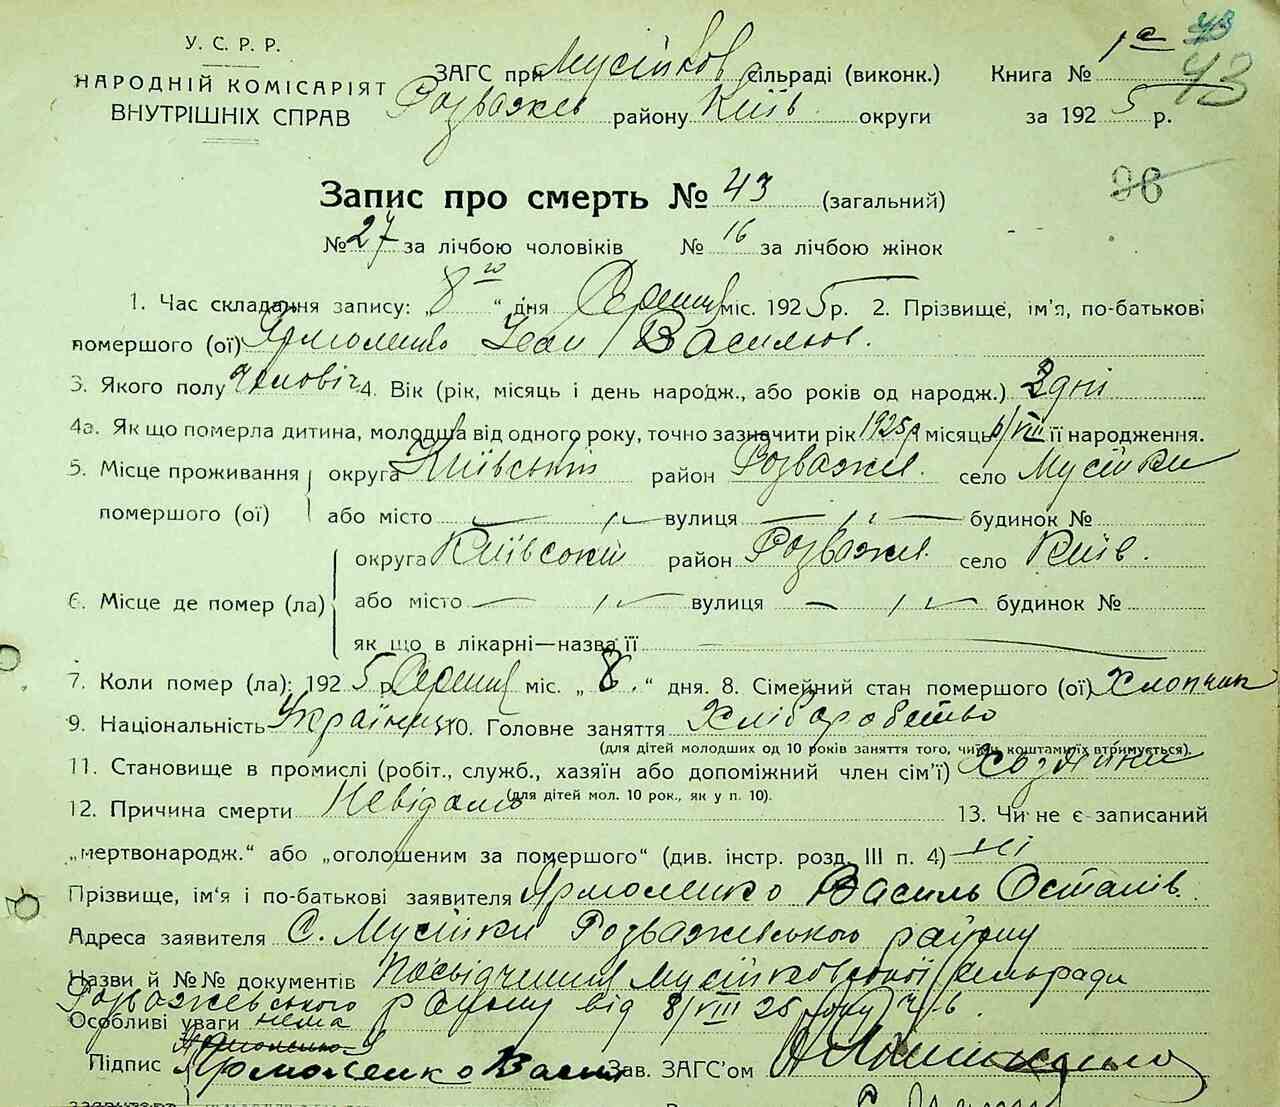 У. С. Р. Р.
НАРОДНІЙ КОМІСАРІЯТ
ВНУТРІШНІХ СПРАВ
ЗАГС при Мусійков сільраді (виконк.)
Розважев району Київ округи
1а 43
Книга № 43
за 1925 р.
96
Запис про смерть № 43 (загальний)
№ 27 за лічбою чоловіків № 16 за лічбою жінок
1. Час складання запису: 8го “ дня Серпня міс. 1925 р. 2. Прізвище, ім’я, по-батькові
помершого (ої) Ярмоленко Іван Васильов.
3. Якого полу Чоловіч 4. Вік (рік, місяць і день нарoдж., або років од народж.) 2 дні
4а. Як що померла дитина, молодша від одного року, точно зазначити рік 1925 р місяць 6/VIII її народження.
5. Місце проживання округа Київський район Розважев. село Мусійки
помершого (ої) або місто вулиця будинок №
округа Київський район Розважев. село Київ.
6. Місце де помер (ла) або місто вулиця будинок №
як що в лікарні—назва її
7. Коли помер (ла): 1925 р. Серпня міс. „ 8. “ дня. 8. Сімейний стан помершого (ої) Хлопчик
9. Національність Українец 10. Головне заняття Хліборобство
(для дітей молодших од 10 років заняття того, чиїми коштами їх втримується).
11. Становище в промислі (робіт., служб., хазяїн або допоміжний член сім’ї) Хозяїни
(для дітей мол. 10 рок., як у п. 10).
12. Причина смерти Невідомо 13. Чи не є записаний
„мертвонародж.“ або „оголошеним за помершого“ (див. інстр. розд. III п. 4) ні
Прізвище, ім‘я і по-батькові заявителя Ярмоленко Василь Остапів.
Адреса заявителя С. Мусійки Розважевського району
Назви й №№ документів Посвідчення Мусійковської сельради
Розважевського району від 8/VIII 25 року ч 6.
Особливі уваги нема
Підпис Ярмоленко Васил Зав. ЗАГС’ом
заявителя